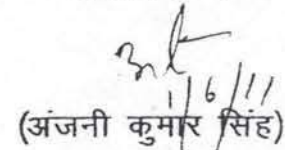 1/6/11
(अंजनी कुमार सिंह)